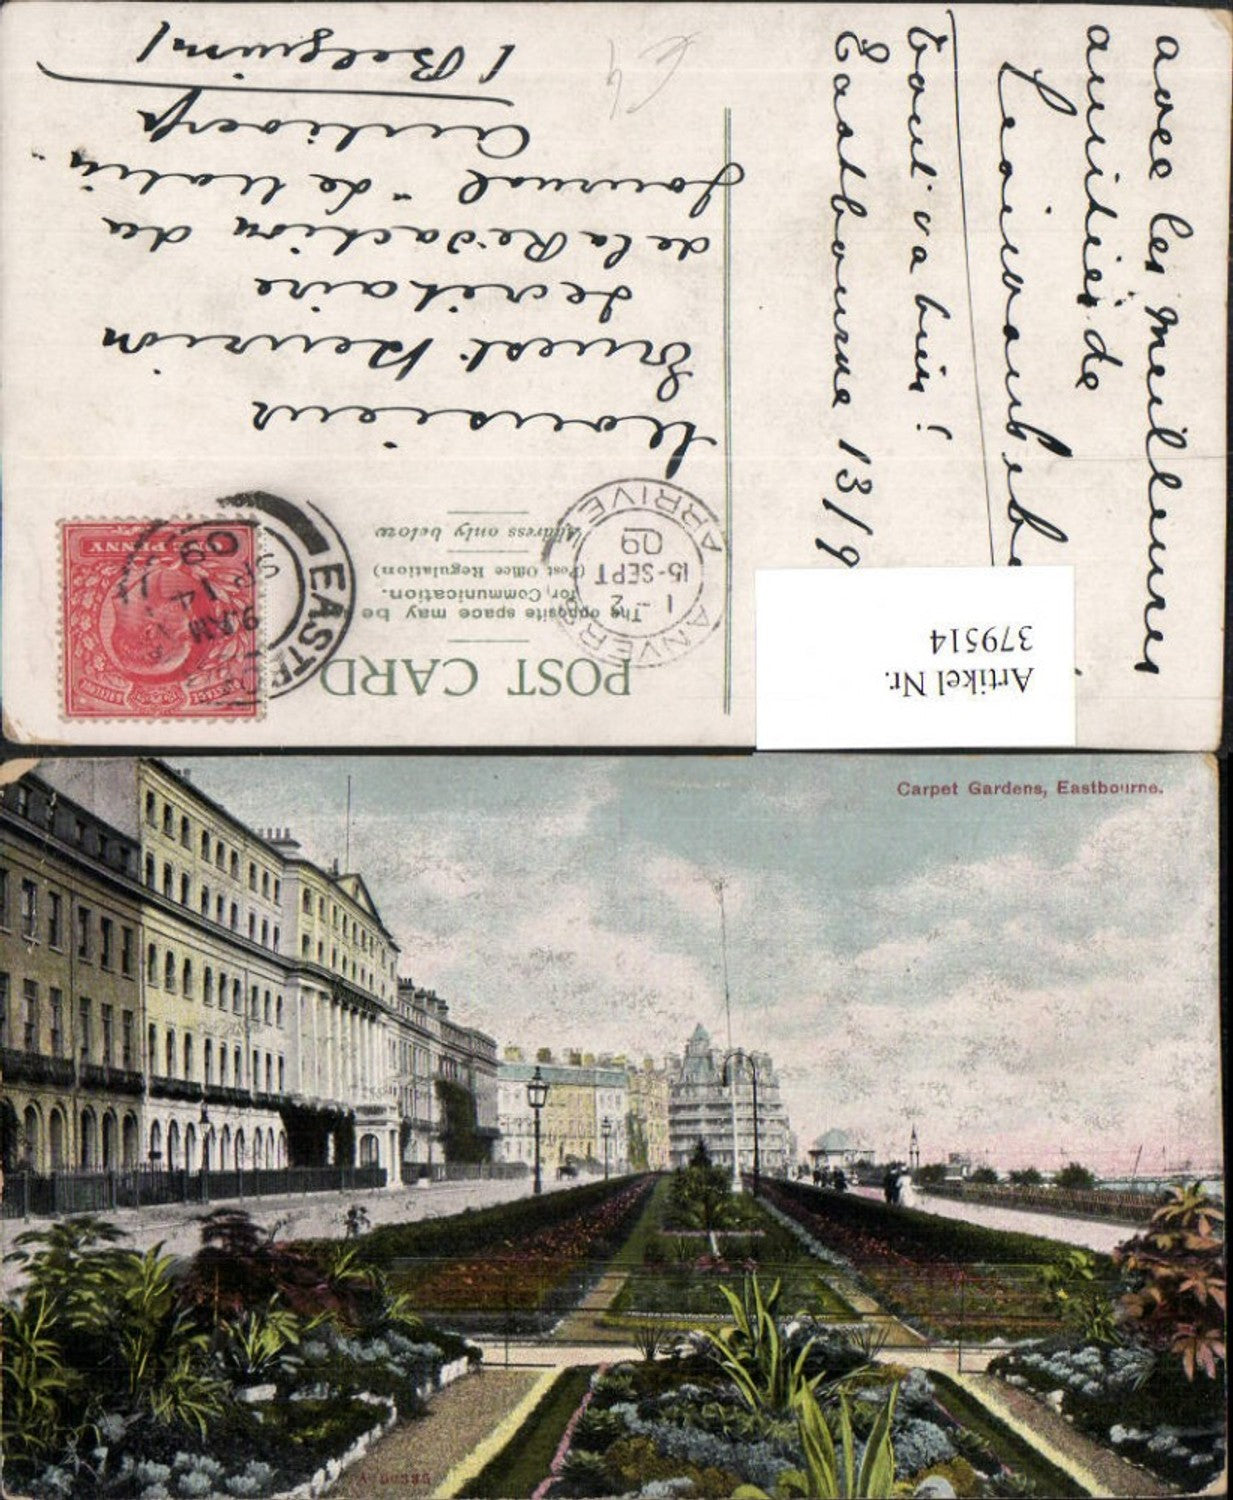 POST CARD
The opposite space may be
for Communication.
(Post Office Regulation)
Address only below
POSTAGE
ONE PENNY
EAST
9. AM
SP 14
09
ANVERS
1 - 2
15-SEPT
09
ARRIVE
Monsieur
Ernest
Secrétaire
de la Rédaction du
Journal "de Matin"
Antwerp
(Belgium)
Eastbourne 13/9
Tout va bien!
avec les meilleures
amitiés de
Artikel Nr.
379514
Carpet Gardens, Eastbourne.